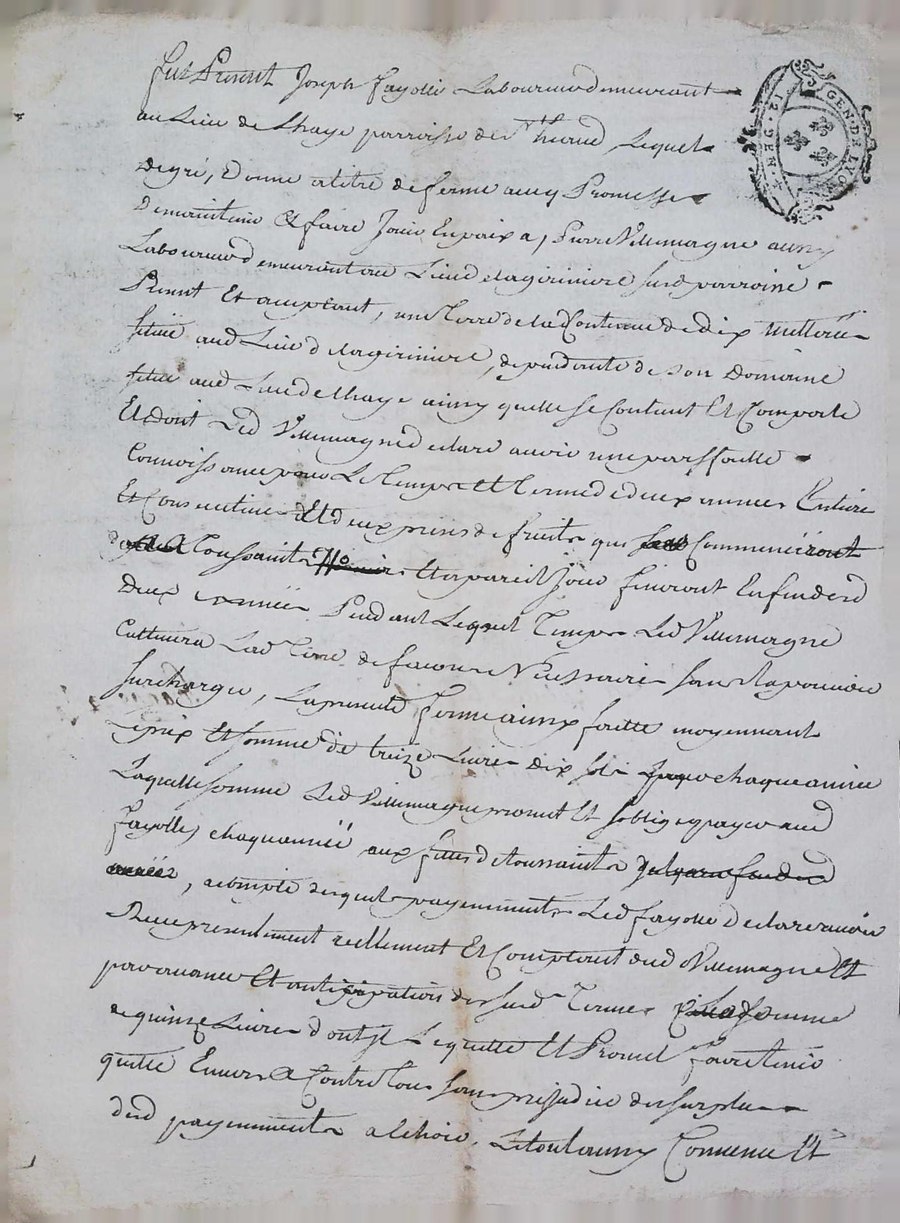 Fut Present Joseph Fayolle Laboureur demeurant
au Lieu de Lhaye parroisse de St heand, Lequel
GEN. DE LYON
12. DEN.
degré, a donné a titre de ferme avecq Promesse
de maintenir & faire Jouir En paix a, Pierre Villemagne aussy
Laboureur demeurant au Lieu delagiriniere susd parroisse
Present Et acceptant, une Terre de la Contenue de dix
situé aud Lieu delagiriniere, depandante de son Domaine
situé aud Lieu de Lhaye ainsy quelle se Contient Et Comporte
Et dont Led Villemagne declare avoir une parffaitte
Connoissance pour Le Temps et Terme de deux années Entiere
Et Consecutives Et deux prises de fruits que Commenceront
Toussaints Et a pareil Jour finiront En fin desd
deux années Pendant Lequel Temps Led Villemagne
Cultivera Lad Terre de facons Necessaires sans La pouvoir
surcharger, La presente Ferme ainsy faitte moyennant
Le prix Et somme de treize Livres dix sols chaque année
Laquelle somme Led Villemagne promet Et soblige payer aud
Fayolle, chaque année aux fêtes de toussaints
année, a compte desquels payements Led fayolle declare avoir
Receu presentement reellement Et Comptant dud Villemagne Et
par avance Et anticipation des susd Termes La somme
de quinze Livres dont il Le quitte Et Promet faire tenir
quitte Envers & Contre Tous sans prejudice du surplus
desd payements a echoir. Le tout ainsy Convenu Et